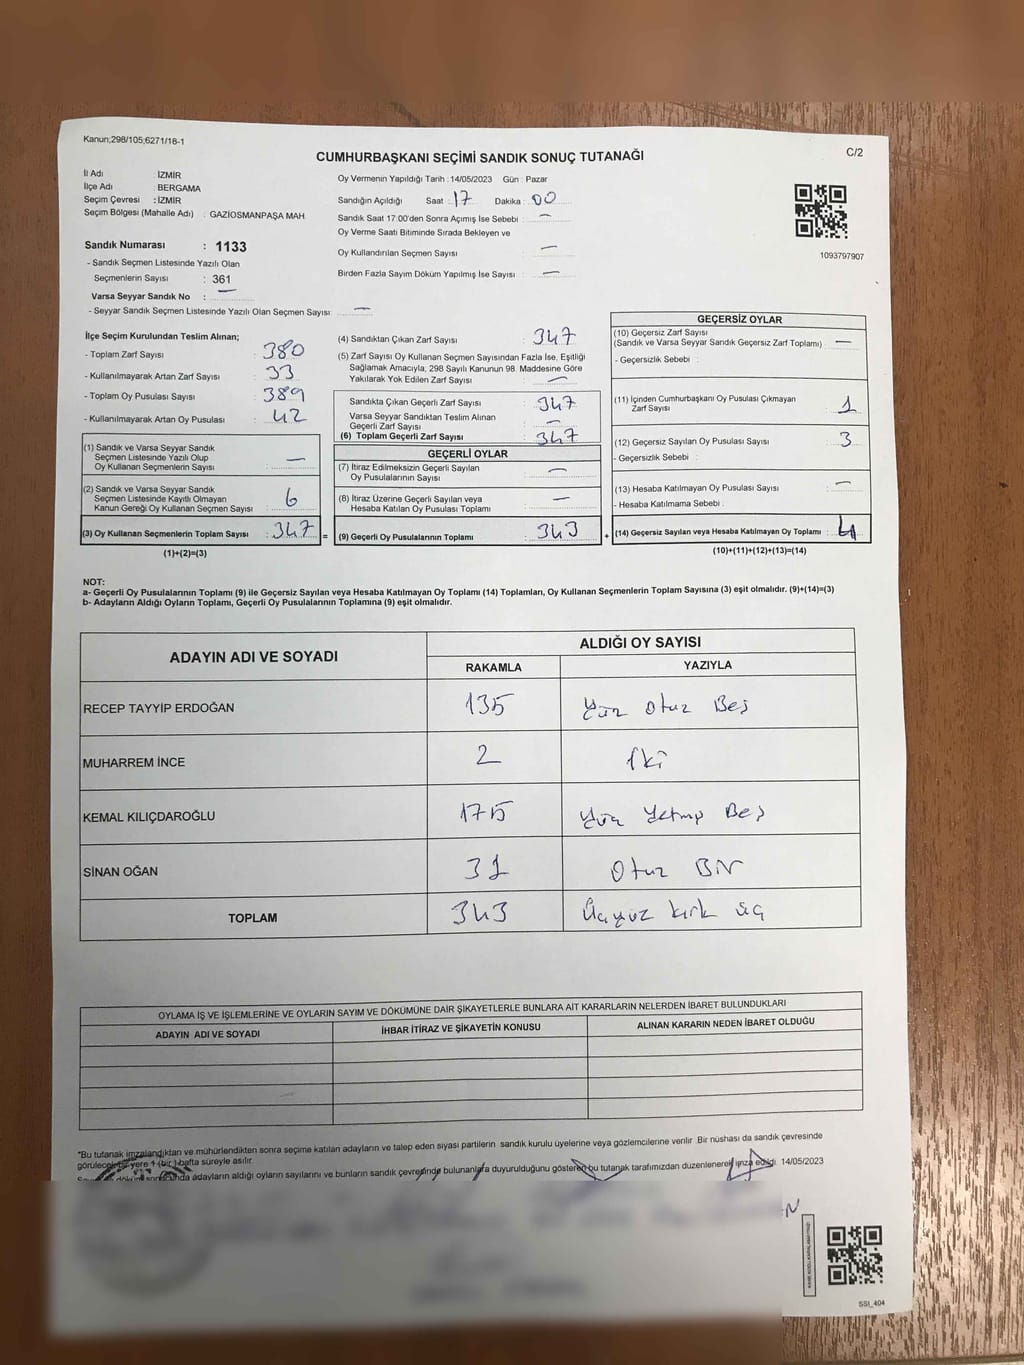 Kanun;298/105;6271/18-1
CUMHURBAŞKANI SEÇİMİ SANDIK SONUÇ TUTANAĞI
C/2
İl Adı : İZMİR
İlçe Adı : BERGAMA
Seçim Çevresi : İZMİR
Seçim Bölgesi (Mahalle Adı) : GAZİOSMANPAŞA MAH.
Sandık Numarası : 1133
- Sandık Seçmen Listesinde Yazılı Olan
Seçmenlerin Sayısı : 361
Varsa Seyyar Sandık No : —
- Seyyar Sandık Seçmen Listesinde Yazılı Olan Seçmen Sayısı: —
Oy Vermenin Yapıldığı Tarih : 14/05/2023 Gün : Pazar
Sandığın Açıldığı Saat : 17 Dakika : 00
Sandık Saat 17:00'den Sonra Açımış İse Sebebi : —
Oy Verme Saati Bitiminde Sırada Bekleyen ve
Oy Kullandırılan Seçmen Sayısı : —
Birden Fazla Sayım Döküm Yapılmış İse Sayısı : —
1093797907
İlçe Seçim Kurulundan Teslim Alınan;
- Toplam Zarf Sayısı : 380
- Kullanılmayarak Artan Zarf Sayısı : 33
- Toplam Oy Pusulası Sayısı : 389
- Kullanılmayarak Artan Oy Pusulası : 42
(1) Sandık ve Varsa Seyyar Sandık
Seçmen Listesinde Yazılı Olup
Oy Kullanan Seçmenlerin Sayısı : —
(2) Sandık ve Varsa Seyyar Sandık
Seçmen Listesinde Kayıtlı Olmayan
Kanun Gereği Oy Kullanan Seçmen Sayısı : 6
(3) Oy Kullanan Seçmenlerin Toplam Sayısı : 347 =
(1)+(2)=(3)
(4) Sandıktan Çıkan Zarf Sayısı : 347
(5) Zarf Sayısı Oy Kullanan Seçmen Sayısından Fazla İse, Eşitliği
Sağlamak Amacıyla; 298 Sayılı Kanunun 98. Maddesine Göre
Yakılarak Yok Edilen Zarf Sayısı : —
Sandıkta Çıkan Geçerli Zarf Sayısı : 347
Varsa Seyyar Sandıktan Teslim Alınan
Geçerli Zarf Sayısı : —
(6) Toplam Geçerli Zarf Sayısı : 347
GEÇERLİ OYLAR
(7) İtiraz Edilmeksizin Geçerli Sayılan
Oy Pusulalarının Sayısı : —
(8) İtiraz Üzerine Geçerli Sayılan veya
Hesaba Katılan Oy Pusulası Toplamı : —
(9) Geçerli Oy Pusulalarının Toplamı : 343 +
GEÇERSİZ OYLAR
(10) Geçersiz Zarf Sayısı
(Sandık ve Varsa Seyyar Sandık Geçersiz Zarf Toplamı) : —
- Geçersizlik Sebebi :
(11) İçinden Cumhurbaşkanı Oy Pusulası Çıkmayan
Zarf Sayısı : 1
(12) Geçersiz Sayılan Oy Pusulası Sayısı : 3
- Geçersizlik Sebebi :
(13) Hesaba Katılmayan Oy Pusulası Sayısı : —
- Hesaba Katılmama Sebebi :
(14) Geçersiz Sayılan veya Hesaba Katılmayan Oy Toplamı : 4
(10)+(11)+(12)+(13)=(14)
NOT:
a- Geçerli Oy Pusulalarının Toplamı (9) ile Geçersiz Sayılan veya Hesaba Katılmayan Oy Toplamı (14) Toplamları, Oy Kullanan Seçmenlerin Toplam Sayısına (3) eşit olmalıdır. (9)+(14)=(3)
b- Adayların Aldığı Oyların Toplamı, Geçerli Oy Pusulalarının Toplamına (9) eşit olmalıdır.
ADAYIN ADI VE SOYADI
ALDIĞI OY SAYISI
RAKAMLA YAZIYLA
RECEP TAYYİP ERDOĞAN 135 Yüz Otuz Beş
MUHARREM İNCE 2 İki
KEMAL KILIÇDAROĞLU 175 Yüz Yetmiş Beş
SİNAN OĞAN 31 Otuz Bir
TOPLAM 343 Üçyüz kırk üç
OYLAMA İŞ VE İŞLEMLERİNE VE OYLARIN SAYIM VE DÖKÜMÜNE DAİR ŞİKAYETLERLE BUNLARA AİT KARARLARIN NELERDEN İBARET BULUNDUKLARI
ADAYIN ADI VE SOYADI İHBAR İTİRAZ VE ŞİKAYETİN KONUSU ALINAN KARARIN NEDEN İBARET OLDUĞU
"Bu tutanak imzalandıktan ve mühürlendikten sonra seçime katılan adayların ve talep eden siyasi partilerin sandık kurulu üyelerine veya gözlemcilerine verilir. Bir nüshası da sandık çevresinde
görülecek bir yere 1 (bir) hafta süreyle asılır.
adayların aldığı oyların sayılarını ve bunların sandık çevresinde bulunanlara duyurulduğunu gösteren bu tutanak tarafımızdan düzenlenerek imza edildi. 14/05/2023
SSI_404